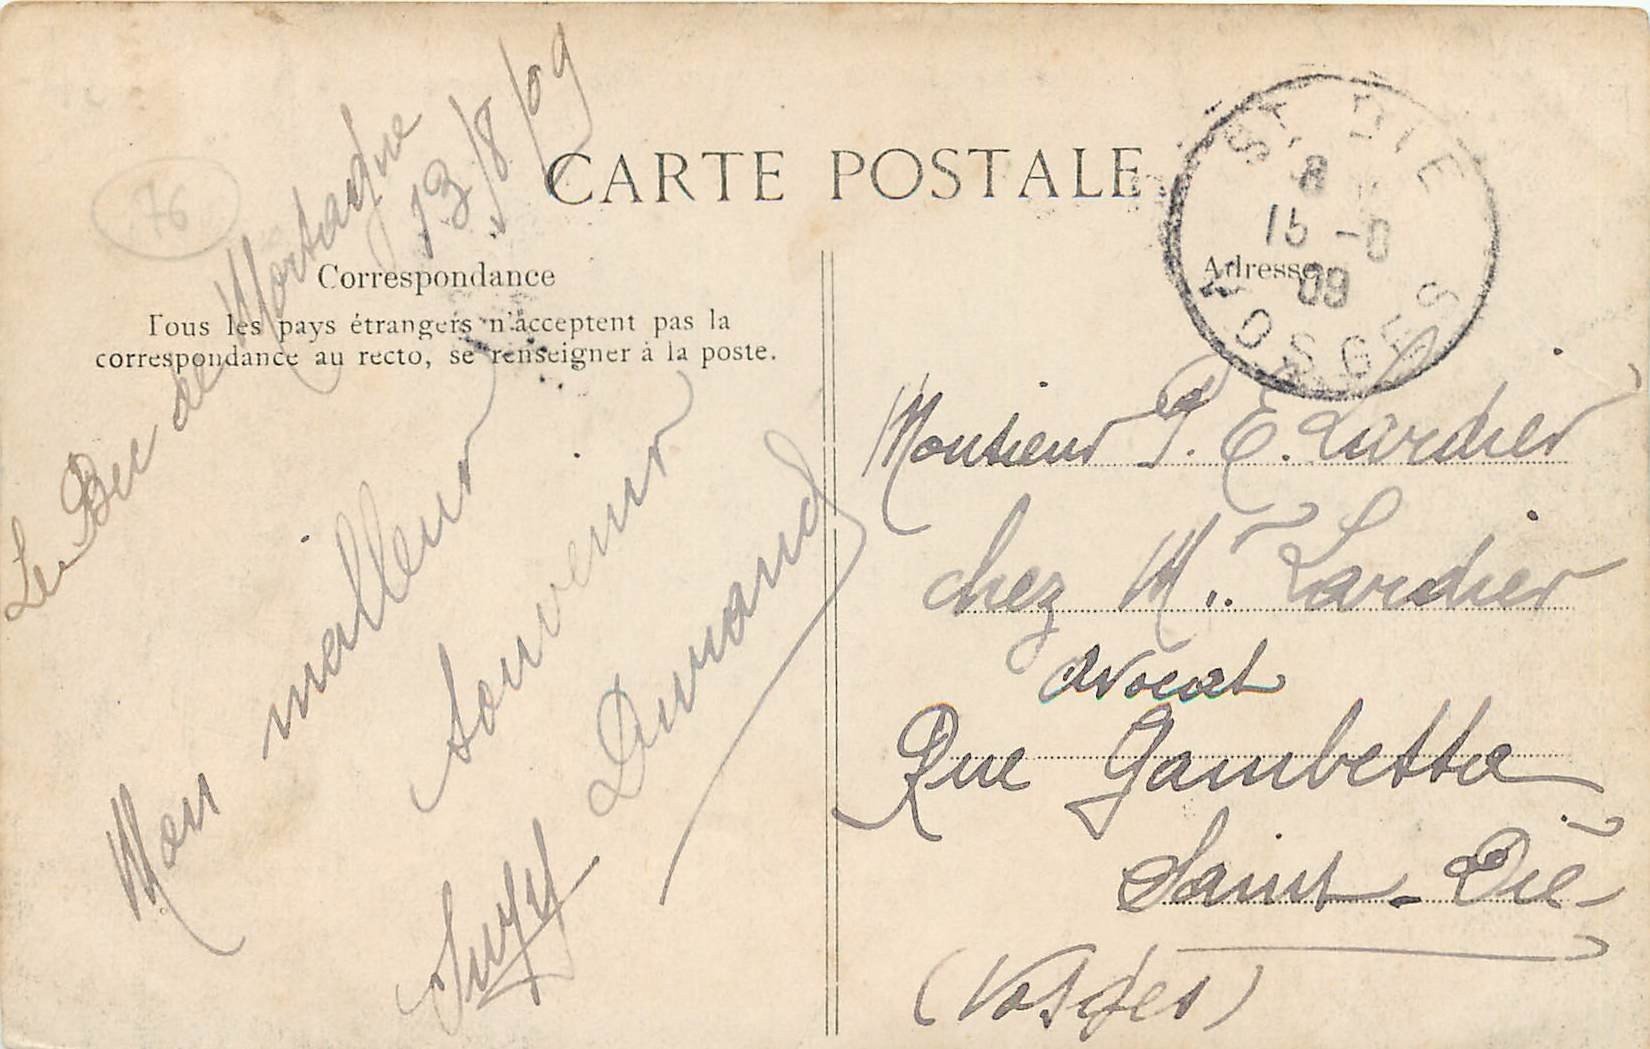 CARTE POSTALE
76
Correspondance
Tous les pays étrangers n'acceptent pas la
correspondance au recto, se renseigner à la poste.
Le Bec de Mortagne
13/8/09
Mon meilleur
souvenir
Suzy Durand
Adresse
ST DIÉ
8
15 -8
09
VOSGES
Monsieur P. E. Lardier
chez Mr. Lardier
avocat
Rue Gambetta
Saint-Dié
(Vosges)